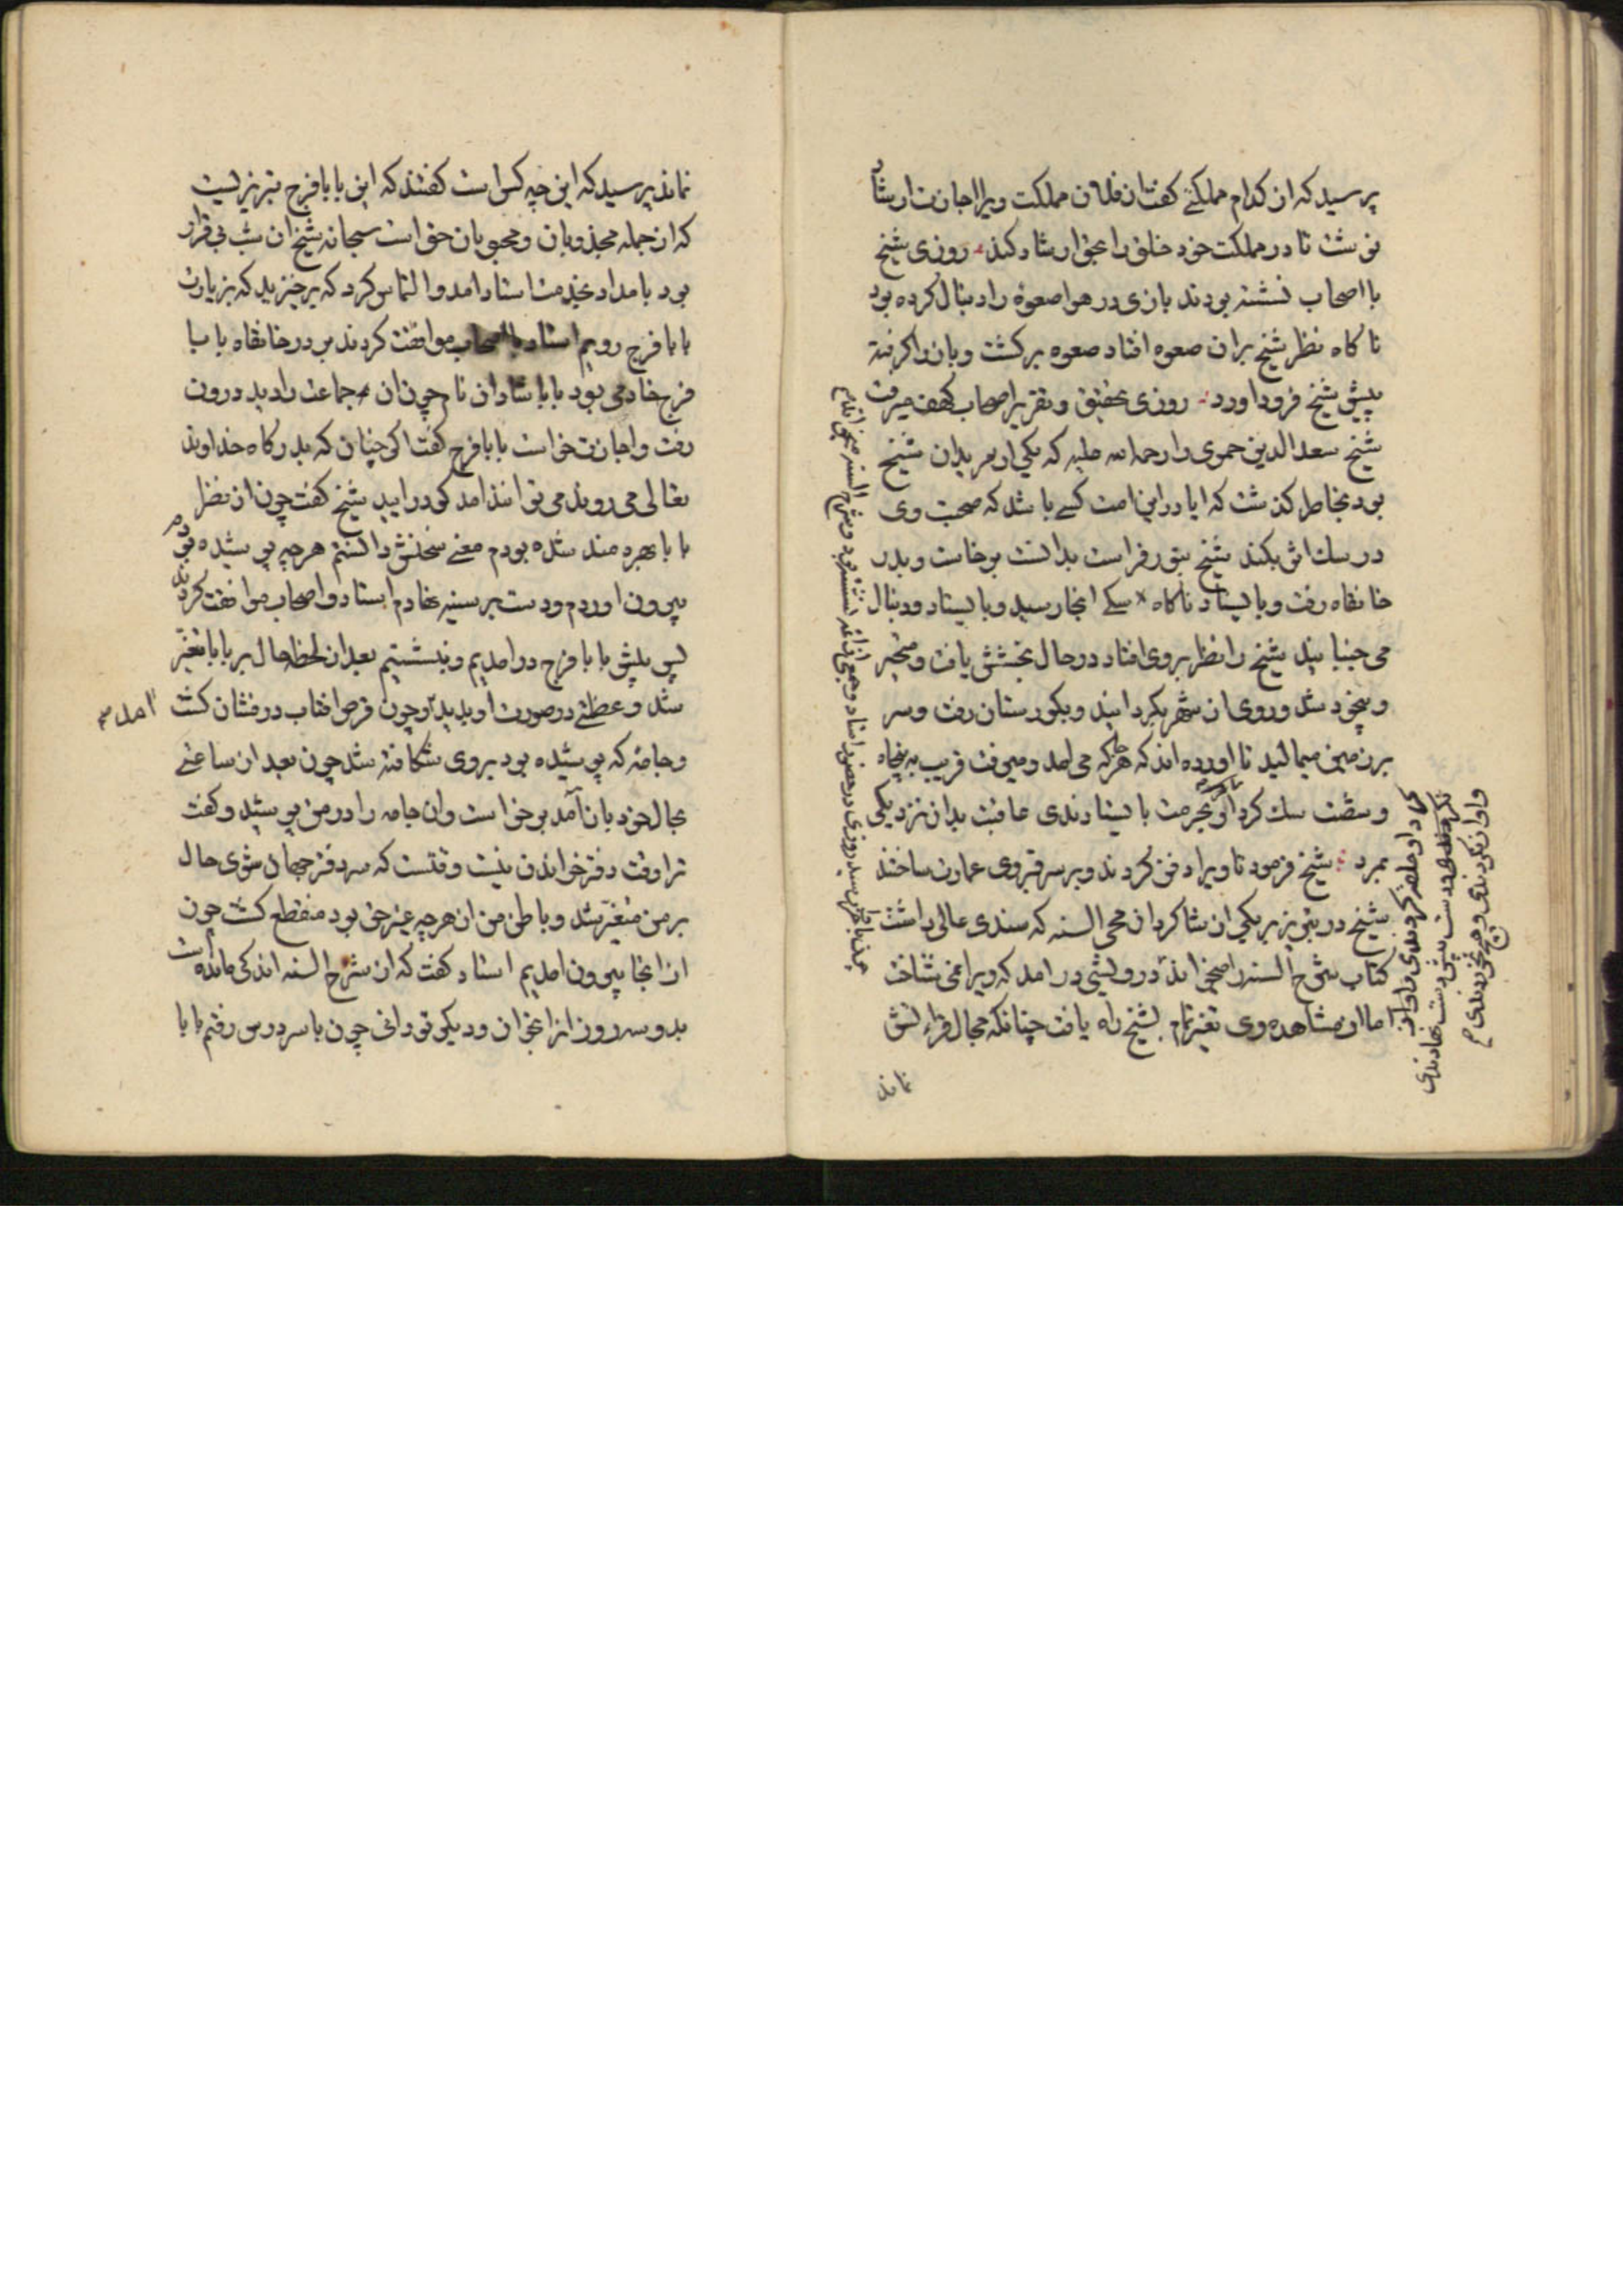 پرسید که از کدام مملکتی گفت از فلان مملکت ویرا اجازت ارشاد
نوشت تا در مملکت خود خلق را بحق ارشاد کند روزی شیخ
با اصحاب نشسته بودند بازی در هوا صعوهٔ را دنبال کرده بود
ناکاه نظر شیخ بران صعوه افتاد صعوه برکشت و باز را کرفته
پیش شیخ فرود اورد روزی تحقیق و تقریر اصحاب کهف میرفت
شیخ سعد الدین حموی را رحمه الله علیه که یکی از مریدان شیخ
بود بخاطر کذشت که ایا درین امت کسی باشد که صحبت وی
در سک اثر بکند شیخ بنور فراست بدانست برخاست و بدر
خانقاه رفت و بایستاد ناکاه سکی انجا رسید و بایستاد و دنبال
می جنبانید شیخ را نظر بروی افتاد در حال بخشش یافت و متحیر
و بیخود شد و روی از شهر بکردانید و بکورستان رفت و سر
بر زمین میمالید تا اورده اند که هر جا که می امد و میرفت قریب به پنجاه
و شصت سک کرد او بحرمت بایستادندی عاقبت بدان نزدیکی
بمرد شیخ فرمود تا ویرا دفن کردند و بر سر قبر وی عمارت ساختند
شیخ در تبریز بر یکی از شاکردان محی السنه که سندی عالی داشت
کتاب شرح السنه را میخواند درویشی در امد که ویرا نمی شناخت
اما از مشاهده وی تغیر تمام بشیخ راه یافت چنانکه مجال قرائتش
نماند
دست پیش دست نهادندی
واواز نکردندی و هیچ نخوردندی
نماند پرسید که این چه کس است کفتند که این بابا فرج تبریزیست
که از جمله مجذوبان و محبوبان حق است سبحانه شیخ ان شب بی قرار
بود بامداد بخدمت استاد امد و التماس کرد که برخیزید که بزیارت
بابا فرج رویم استاد با اصحاب موافقت کردند بر در خانقاه بابا
فرج خادمی بود بابا شادان نام چون ان جماعت را دید درون
رفت و اجازت خواست بابا فرج کفت اکر چنان که بدرکاه خداوند
تعالی می روند می توانند امد کو در ایید شیخ کفت چون از نظر
بابا بهره مند شده بودم معنی سخنش دانستم هر چه پوشیده بودم
بیرون اوردم و دست بر سینه نهادم استاد و اصحاب موافقت کردند
پس پیش بابا فرج در امدیم و بنشستیم بعد از لحظه حال بر بابا متغیر
شد و عظمتی در صورت او پدید آمد و چون قرص افتاب درفشان کشت
و جامهٔ که پوشیده بود بروی شکافته شد چون بعد از ساعتی
بحال خود باز آمد برخاست و ان جامه را در من پوشید و کفت
ترا وقت دفتر خواندن نیست وقتست که سر دفتر جهان شوی حال
بر من متغیر شد و باطن من از هر چه غیر حق بود منقطع کشت چون
از انجا بیرون امدیم استاد کفت که از شرح السنه اندکی مانده است
بدو سه روز انرا بخوان و دیکر تو دانی چون با سر درس رفتم بابا